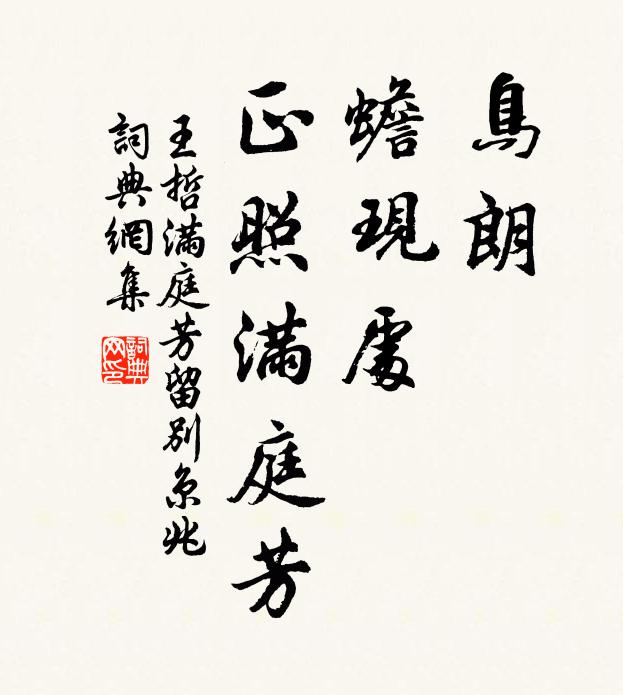 烏朗
蟾現處
正照滿庭芳
王哲滿庭芳留別京兆
詞典網集
詞典網印